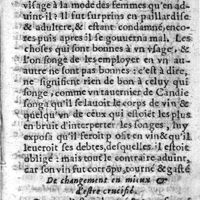 vſſage à la mode des femmes qu'en ad-
uint-il? Il fut ſurprins en paillardiſe
& adultere, & eſtant condamné, enco-
res puis apres il ſe gouuerna mal. Les
choſes qui ſont bonnes à vn vſage, &
l'on ſonge de les employer en vn au-
autre ne ſont pas bonnes: c'eſt à dire,
ne ſignifiẽt rien de bon à celuy qui
ſonge, comme vn tauernier de Candie
ſongea qu'il ſe lauoit le corps de vin &
quelqu'vn de ceux qui eſtoiẽt les plus
en bruit d'interpreter les ſonges, luy
expoſa qu'il feroit profit en vin & qu'il
leueroit ſes debtes, deſquelles il eſtoit
obligé: mais tout le contraire aduint,
car ſon vin fut corrõpu, tourné & gaſté
De changement en mieux &
l'eſtre crucifié.